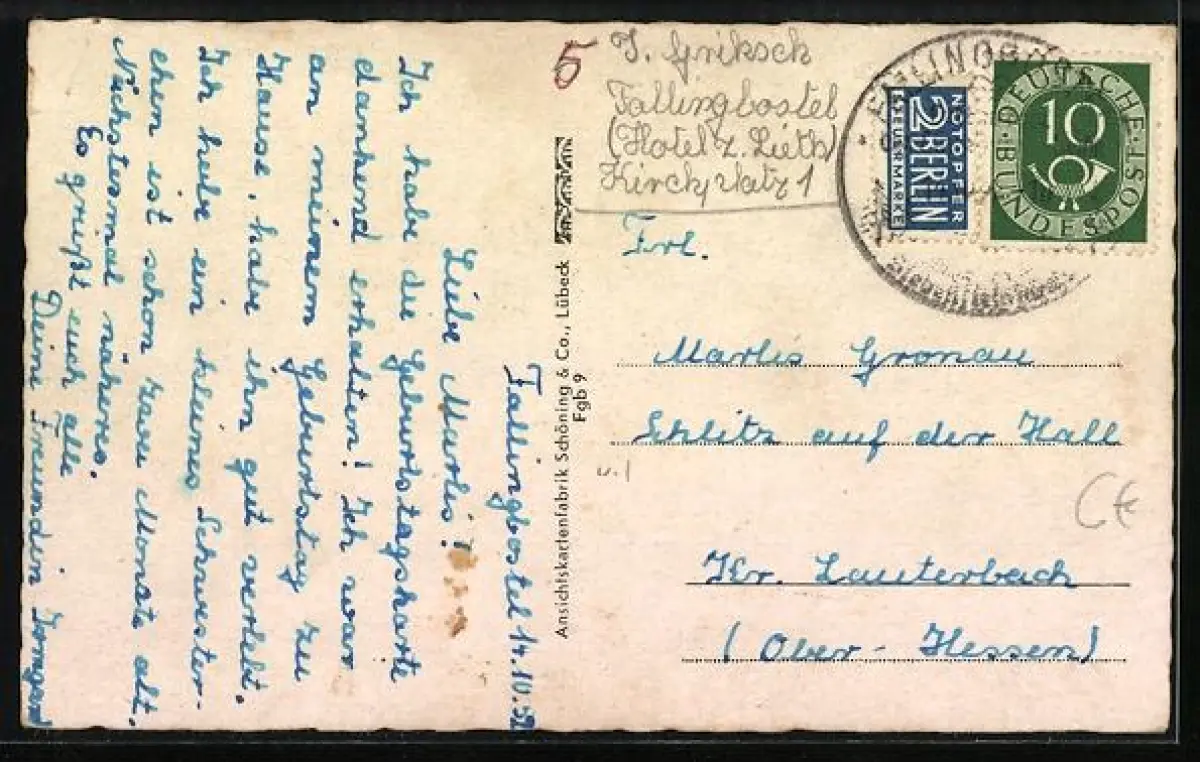 Fallingbostel 14.10.52
Liebe Marlis!
Ich habe die Geburtstagskarte
dankend erhalten! Ich war
an meinem Geburtstag zu
Hause, habe ihn gut verlebt.
Ich habe ein kleines Schwester-
chen ist schon zwei Monate alt.
Nächstesmal näheres.
Es grüßt euch alle
Deine Freundin Irmgard
Ansichtskartenfabrik Schöning & Co., Lübeck
Fgb 9
5
J. Griksch
Fallingbostel
(Hotel z. Lieth)
Kirchplatz 1
NOTOPFER
2 BERLIN
STEUERMARKE
DEUTSCHE
10
BUNDESPOST
Frl.
Marlis Gronau
Schlitz auf der Hall
Kr. Lauterbach
(Ober-Hessen)